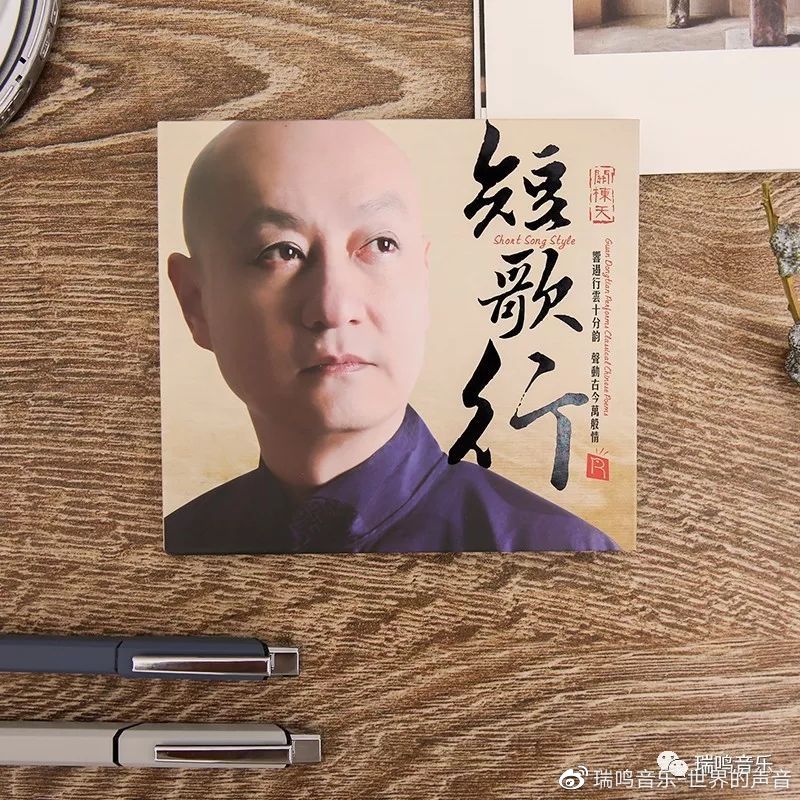 短歌行
Short Song Style
關棟天
Guan Dongtian Performs Classical Chinese Poems
響遏行雲十分韵 聲動古今萬般情
R
瑞鸣音乐
瑞鸣音乐-世界的声音